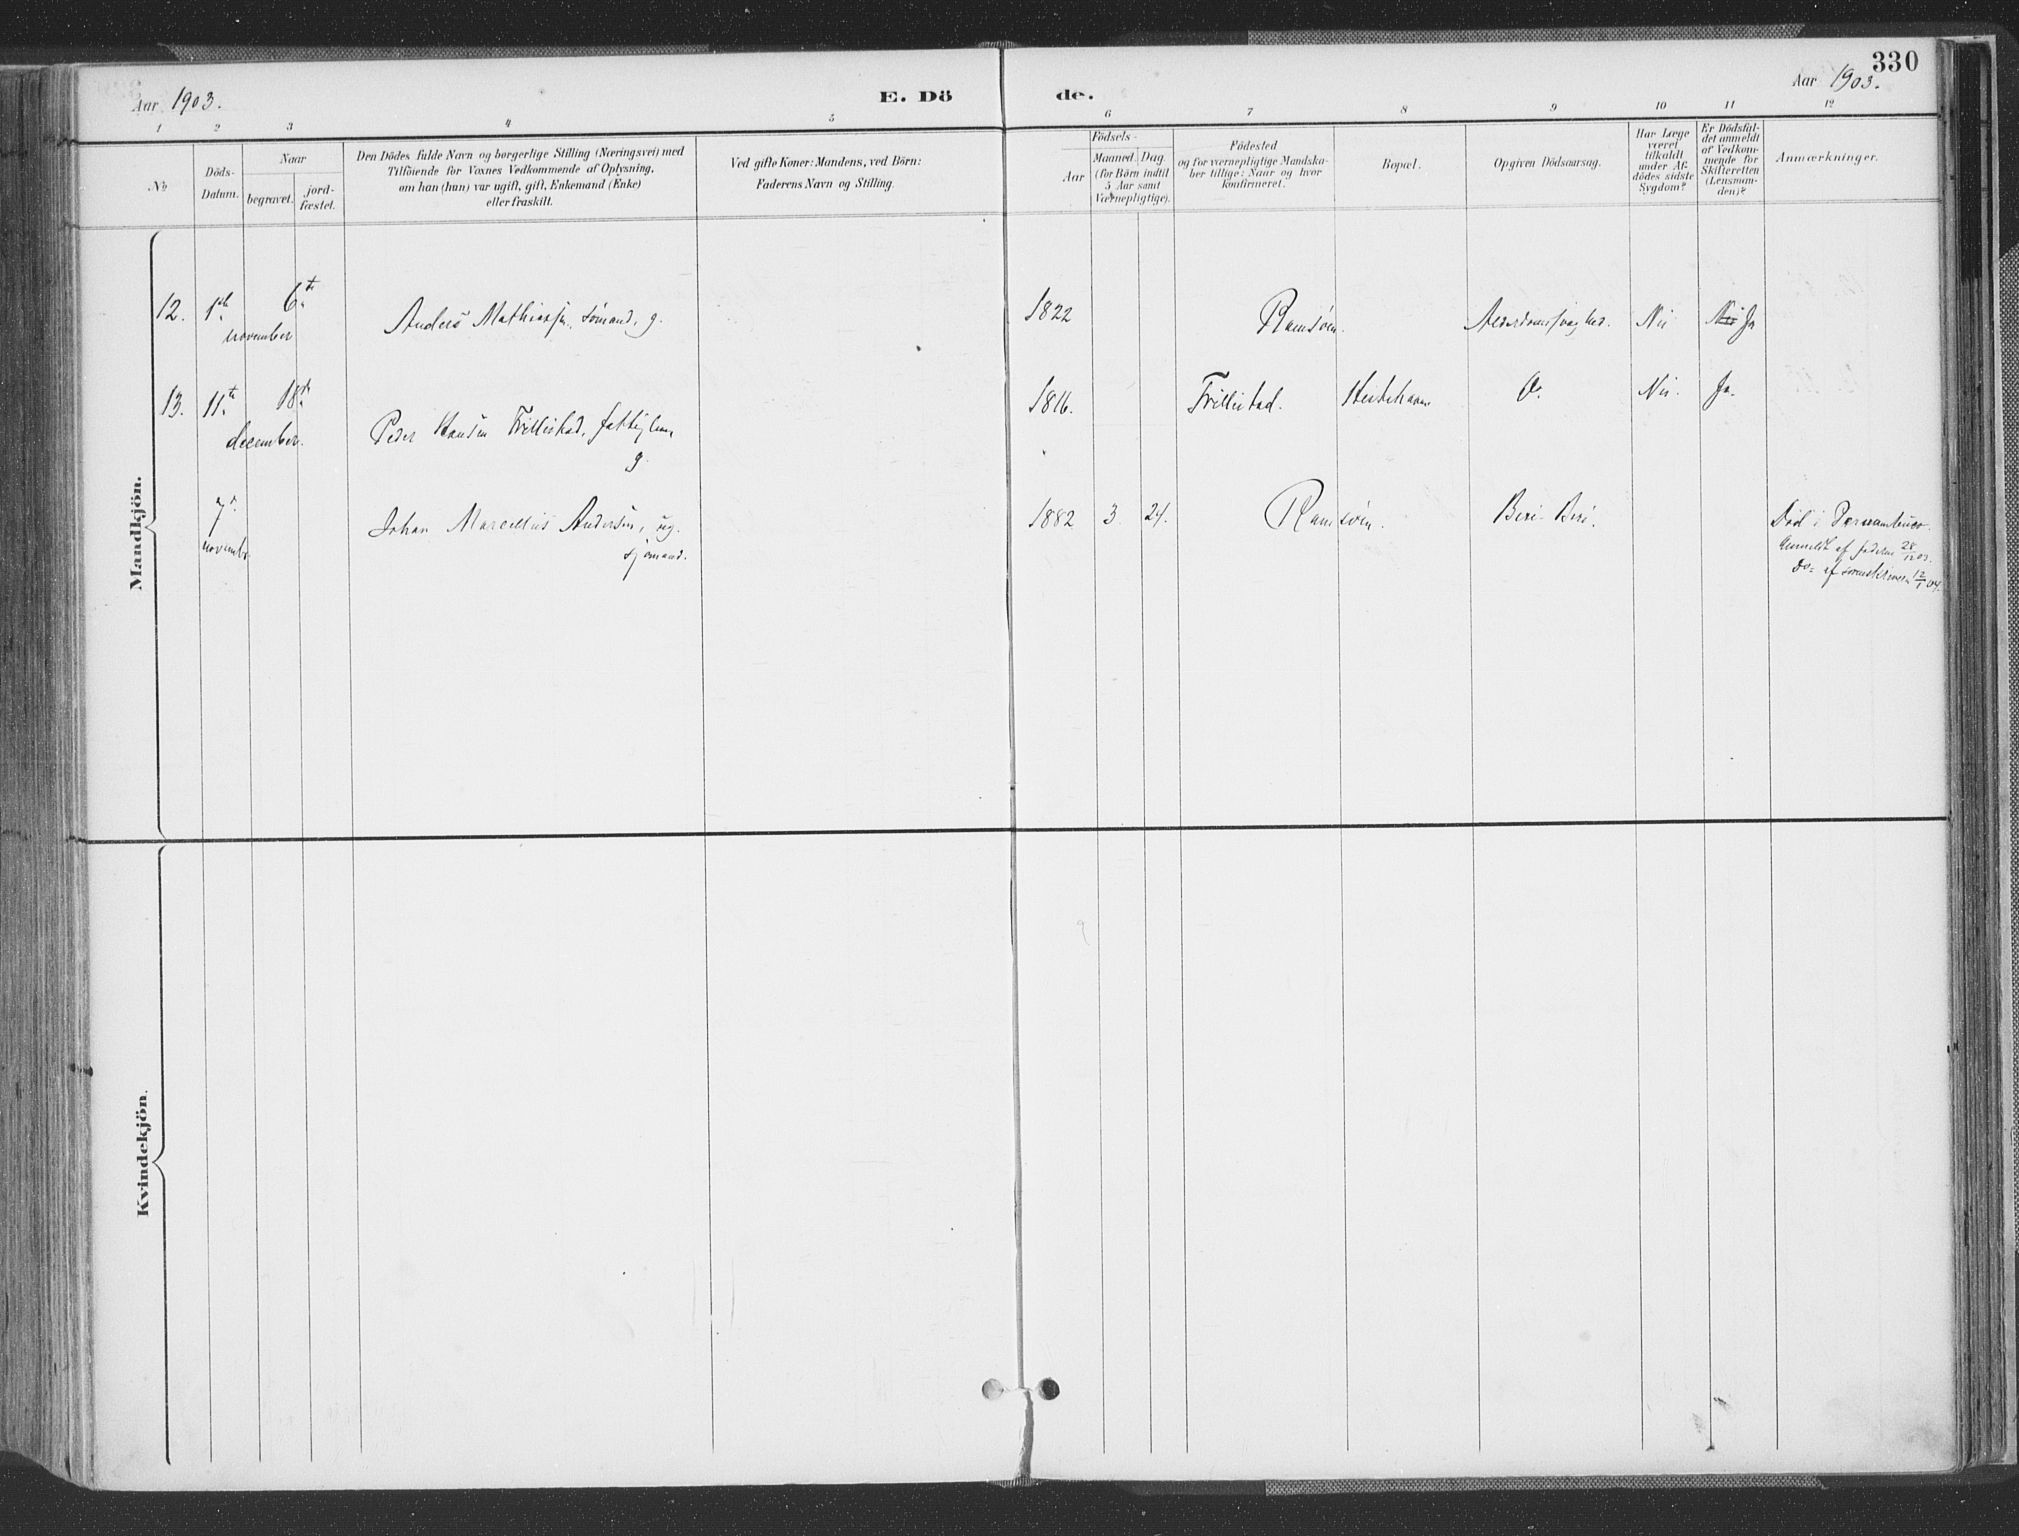 330
Aar 1903.
E. Dö
de.
Aar 1903.
1 2 3 4 5 6 7 8 9 10 11 12
No
Döds-
Datum.
Naar
begravet.
jord-
fæstet.
Den Dödes fulde Navn og borgerlige Stilling (Næringsvei) med
Tilföiende for Voxnes Vedkommende af Oplysning,
om han (hun) var ugift, gift, Enkemand (Enke)
eller fraskilt.
Ved gifte Koner: Mandens, ved Börn:
Faderens Navn og Stilling.
Födsels-
Aar
Maaned. Dag.
(for Börn indtil
5 Aar samt
Værnepligtige).
Födested
og for værnepligtige Mandska-
ber tillige: Naar og hvor
konfirmeret.
Bopæl.
Opgiven Dödsaarsag.
Har Læge
været
tilkaldt
under Af-
dödes sidste
Sygdom?
Er Dödsfal-
det anmeldt
af Vedkom-
mende for
Skifteretten
(Lensman-
den)?
Anmærkninger.
Mandkjön.
12. 1ste november 6te Anders Mathiassen, sømand, g. 1822 Ramsøen. Alderdomssvaghed. Nei Nei Ja
13. 11te december 18de Peder Hansen Trillestad, fattiglem, 1816. Trillestad. Hestehavn Do Nei. Ja.
g.
7de Johan Marcelius Andersen, ug. 1882 3. 24. Ramsøen. Beri-Beri. Død i Pernambuco.
novembr sjømand.
Anmeldt af faderen 28/12 03.
Do = af sorenskriveren 12/1 04.
Kvindekjön.